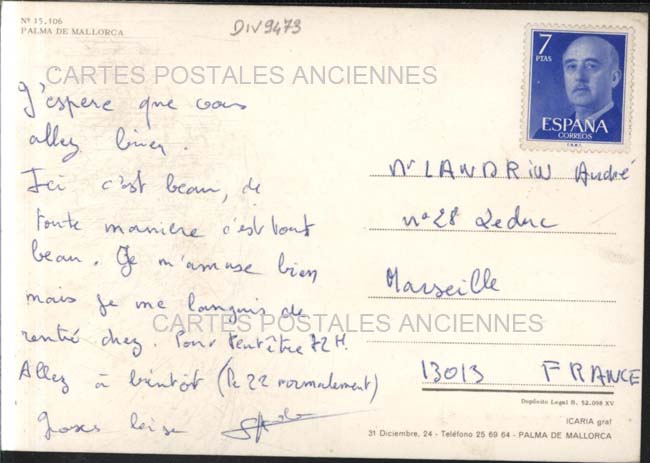 Nº 15.106
PALMA DE MALLORCA
DIV9473
CARTES POSTALES ANCIENNES
7
PTAS
ESPAÑA
CORREOS
J'espere que vous
allez bien.
Ici c'est beau, de
toute manière c'est tout
beau. Je m'amuse bien
mais je me languis de
rentré chez. Pour
72 H.
Allez à bientôt (le 22 normalement)
Mr LANDRIN André
nº 28 Leduc
Marseille
13013 FRANCE
CARTES POSTALES ANCIENNES
Depósito Legal B. 52.098 XV
ICARIA graf
31 Diciembre, 24 - Teléfono 25 69 64 - PALMA DE MALLORCA